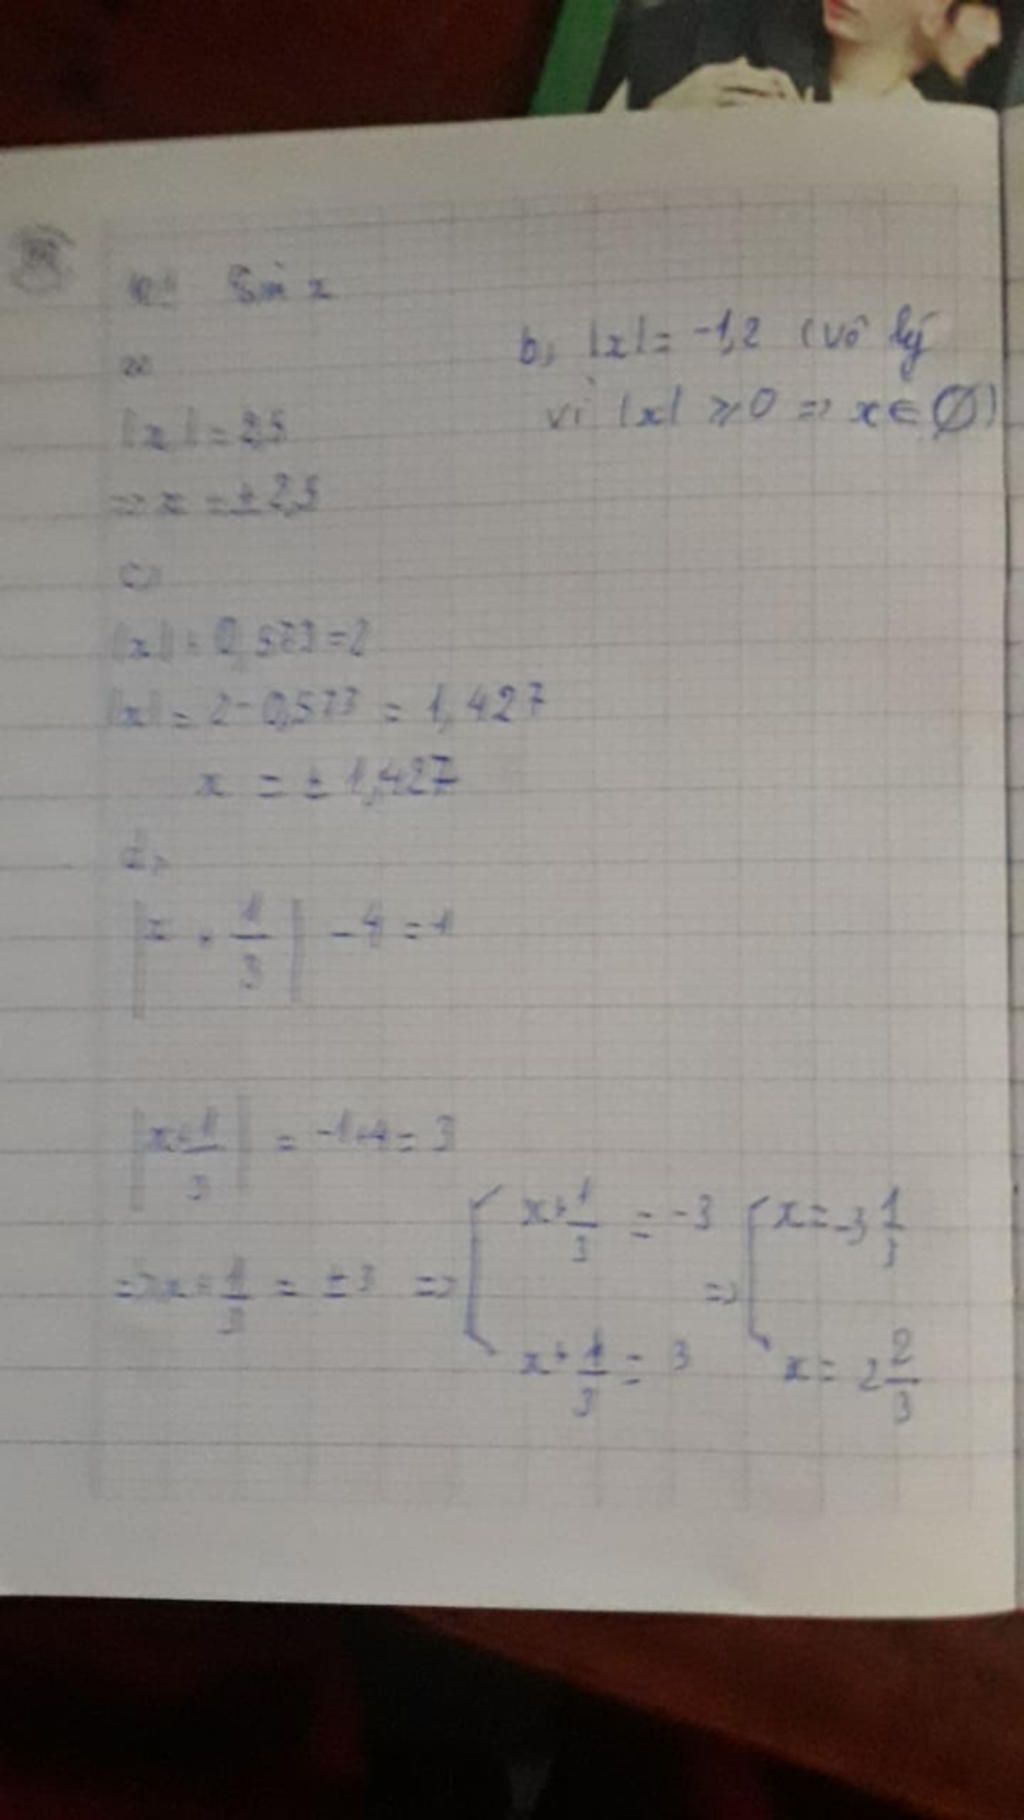 Tìm x
a,
|x| = 2,5
=> x = ± 2,5
b, |x| = -1,2 (vô lý
vì |x| ⩾ 0 => x ∈ ∅)
c,
|x| + 0,573 = 2
|x| = 2 - 0,573 = 1,427
x = ± 1,427
d,
|x + 1/3| - 4 = -1
|x + 1/3| = -1 + 4 = 3
=> x + 1/3 = ± 3 => [ x + 1/3 = -3 => [ x = -3 1/3
x + 1/3 = 3 x = 2 2/3